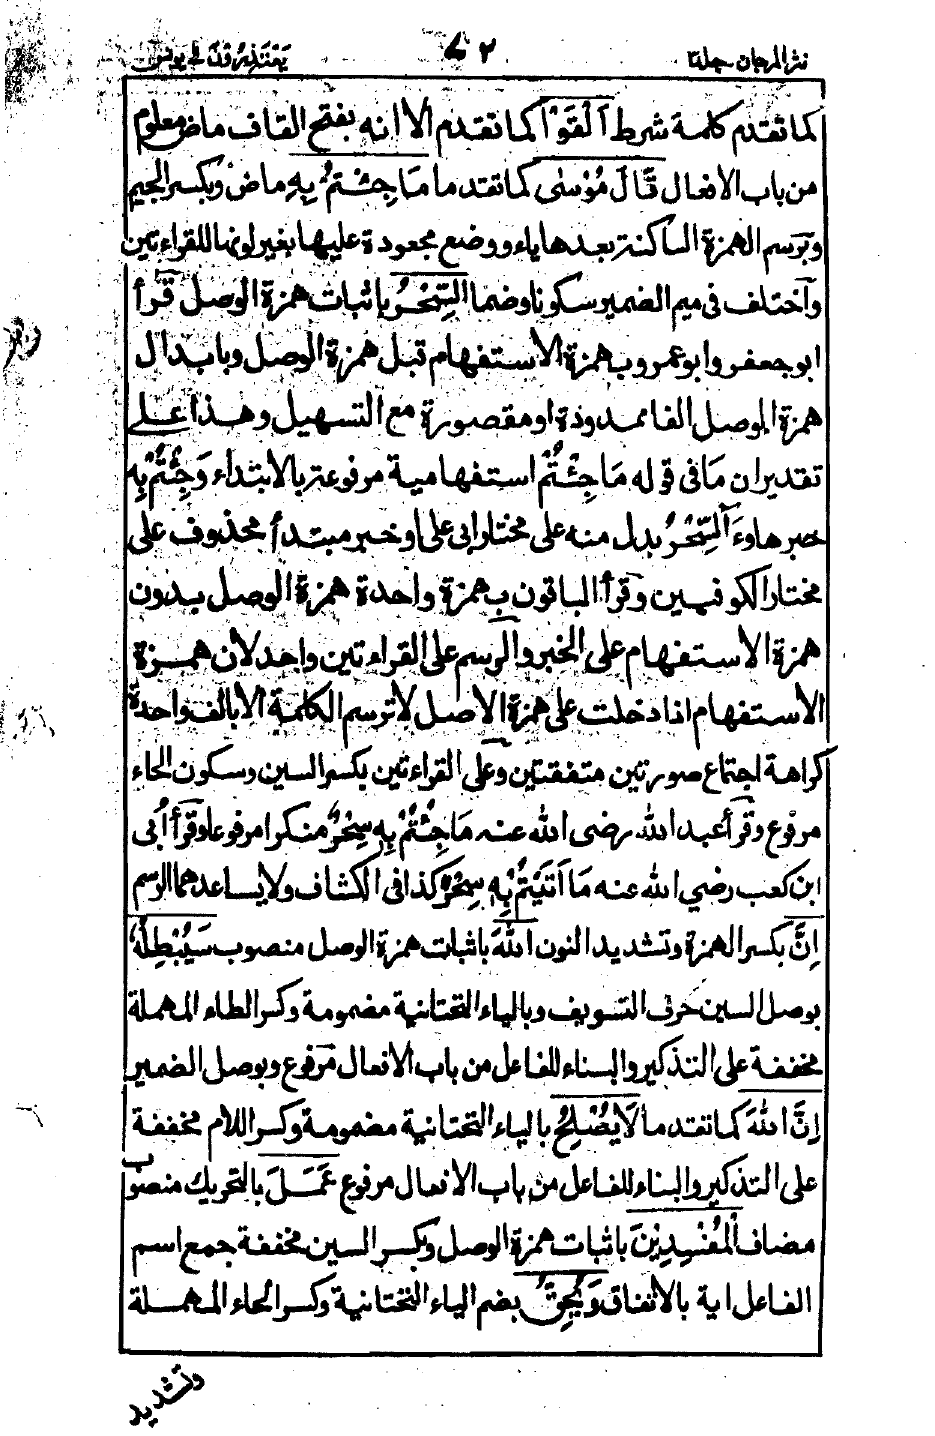 نثر المرجان جلد٣ ٧٢ يَعْتَذِرُوْنَ فى يونس
كما تقدم كلمة شرط اَلْقَوْا كما تقدم الا انه بفتح القاف ماض معلوم
من باب الافعال قَالَ مُوْسٰى كما تقدما مَا جِئْتُمْ بِهِ ماض وبكسر الجيم
وبرسم الهمزة الساكنة بعدها ياء ووضع مجعودة عليها بغير لونها للقراءتين
واختلف فى ميم الضمير سكونا وضما السِّحْرُ باثبات همزة الوصل قرأ
ابو جعفر وابو عمرو بهمزة الاستفهام قبل همزة الوصل وبابدال
همزة الوصل الفا ممدودة او مقصورة مع التسهيل وهذا على
تقدير ان ما فى قوله مَا جِئْتُمْ استفهامية مرفوعة بالابتداء وَجِئْتُمْ بِهِ
خبرها وءَآلسِّحْرُ بدل منه على مختار ابى على او خبر مبتدأ محذوف على
مختار الكوفيين وقرأ الباقون بهمزة واحدة همزة الوصل بدون
همزة الاستفهام على الخبر والرسم على القراءتين واحد لان همزة
الاستفهام اذا دخلت على همزة الاصل لا ترسم الكلمة الا بالف واحدة
كراهة اجتماع صورتين متفقتين وعلى القراءتين بكسر السين وسكون الحاء
مرفوع وقرأ عبد الله رضى الله عنه مَا جِئْتُمْ بِهِ سِحْرٌ منكرا مرفوعا وقرأ اُبى
ابن كعب رضي الله عنه مَا اَتَيْتُمْ بِهِ سِحْرٌ كذا فى الكشاف ولا يساعدهما الرسم
اِنَّ بكسر الهمزة وتشديد النون اللّٰهَ باثبات همزة الوصل منصوب سَيُبْطِلُهُ
بوصل السين حرف التسويف وبالياء التحتانية مضمومة وكسر الطاء المهملة
مخففة على التذكير والبناء للفاعل من باب الافعال مرفوع وبوصل الضمير
اِنَّ اللّٰهَ كما تقدما لَا يُصْلِحُ بالياء التحتانية مضمومة وكسر اللام مخففة
على التذكير والبناء للفاعل من باب الافعال مرفوع عَمَلَ بالتحريك منصوب
مضاف الْمُفْسِدِيْنَ باثبات همزة الوصل وبكسر السين مخففة جمع اسم
الفاعل اية بالاتفاق وَيُحِقُّ بضم الياء التحتانية وكسر الحاء المهملة
وتشديد